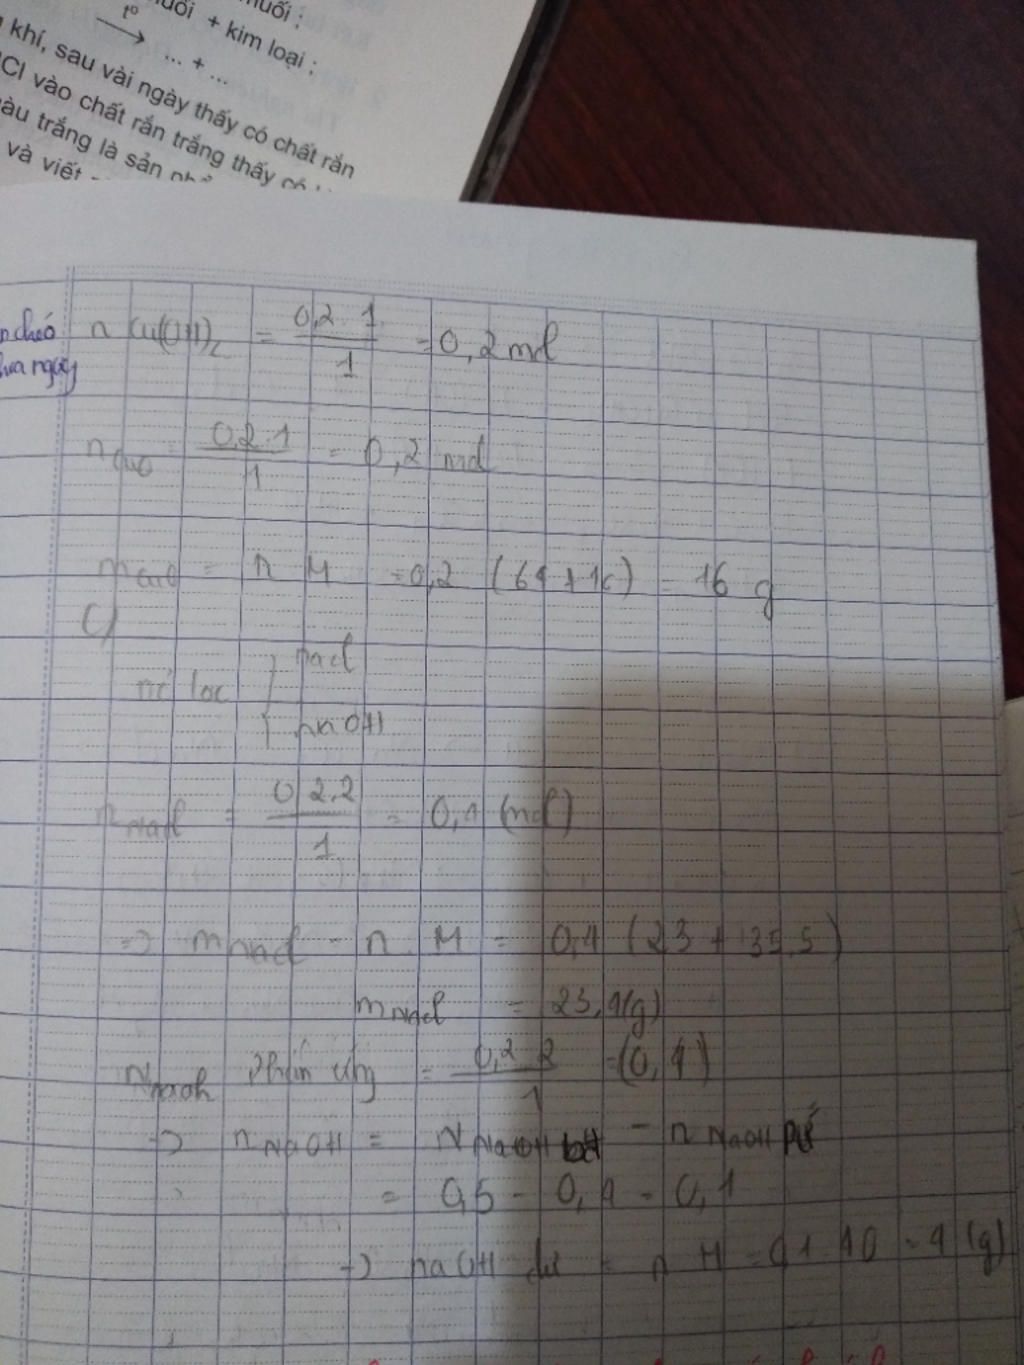 muối ;
+ kim loại ;
t° → ... + ...
khí, sau vài ngày thấy có chất rắn
Cl vào chất rắn trắng thấy có
àu trắng là sản
và viết
n chéo
n Cu(OH)2 = 0,2.1 / 1 = 0,2 mol
n CuO = 0,2.1 / 1 = 0,2 mol
m CuO = n M = 0,2 (64 + 16) = 16 g
C)
lọc { nacl
NaOH
n Nacl = 0,2.2 / 1 = 0,4 (mol)
=> m Nacl = n. M = 0,4 (23 + 35,5)
m Nacl = 23,4 (g)
n naoh phản ứng = 0,2.2 / 1 = (0,4)
-> n NaOH = n NaOH bđ - n NaOH pứ
= 0,5 - 0,4 = 0,1
-> naOH dư = n M = 0,1.40 = 4 (g)